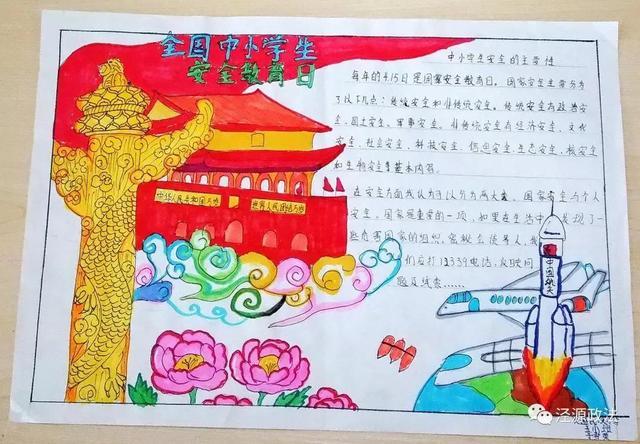 全国中小学生
安全教育日
中小学生安全的主要性
每年的4.15日是国家安全教育日。国家安全主要分为
了以下几点：传统安全和非传统安全。传统安全有政治安
全、国土安全、军事安全。非传统安全有经济安全、文化
安全、社会安全、科技安全、信息安全、生态安全、核安全
和生物安全等基本内容。
在安全方面我认为可以分为两大类、国家安全与个人
安全。国家是重要的一项，如果在生活中发现了一
些危害国家的组织、窃秘、去使等人，我
们应打12339电话，反映问
题及线索……
中华人民共和国万岁
世界人民团结万岁
中国航天
泾源政法